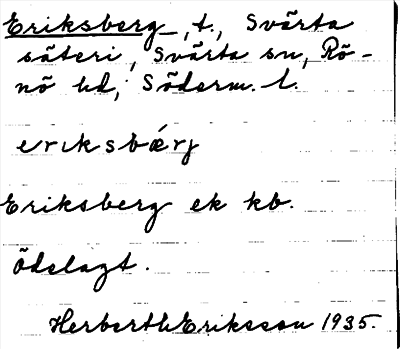 Eriksberg, t., Svärta
säteri, Svärta sn, Rö-
nö hd, Söderm. l.
eriksbǽrj
Eriksberg ek kb.
Ödelagt.
Herbert Eriksson 1935.